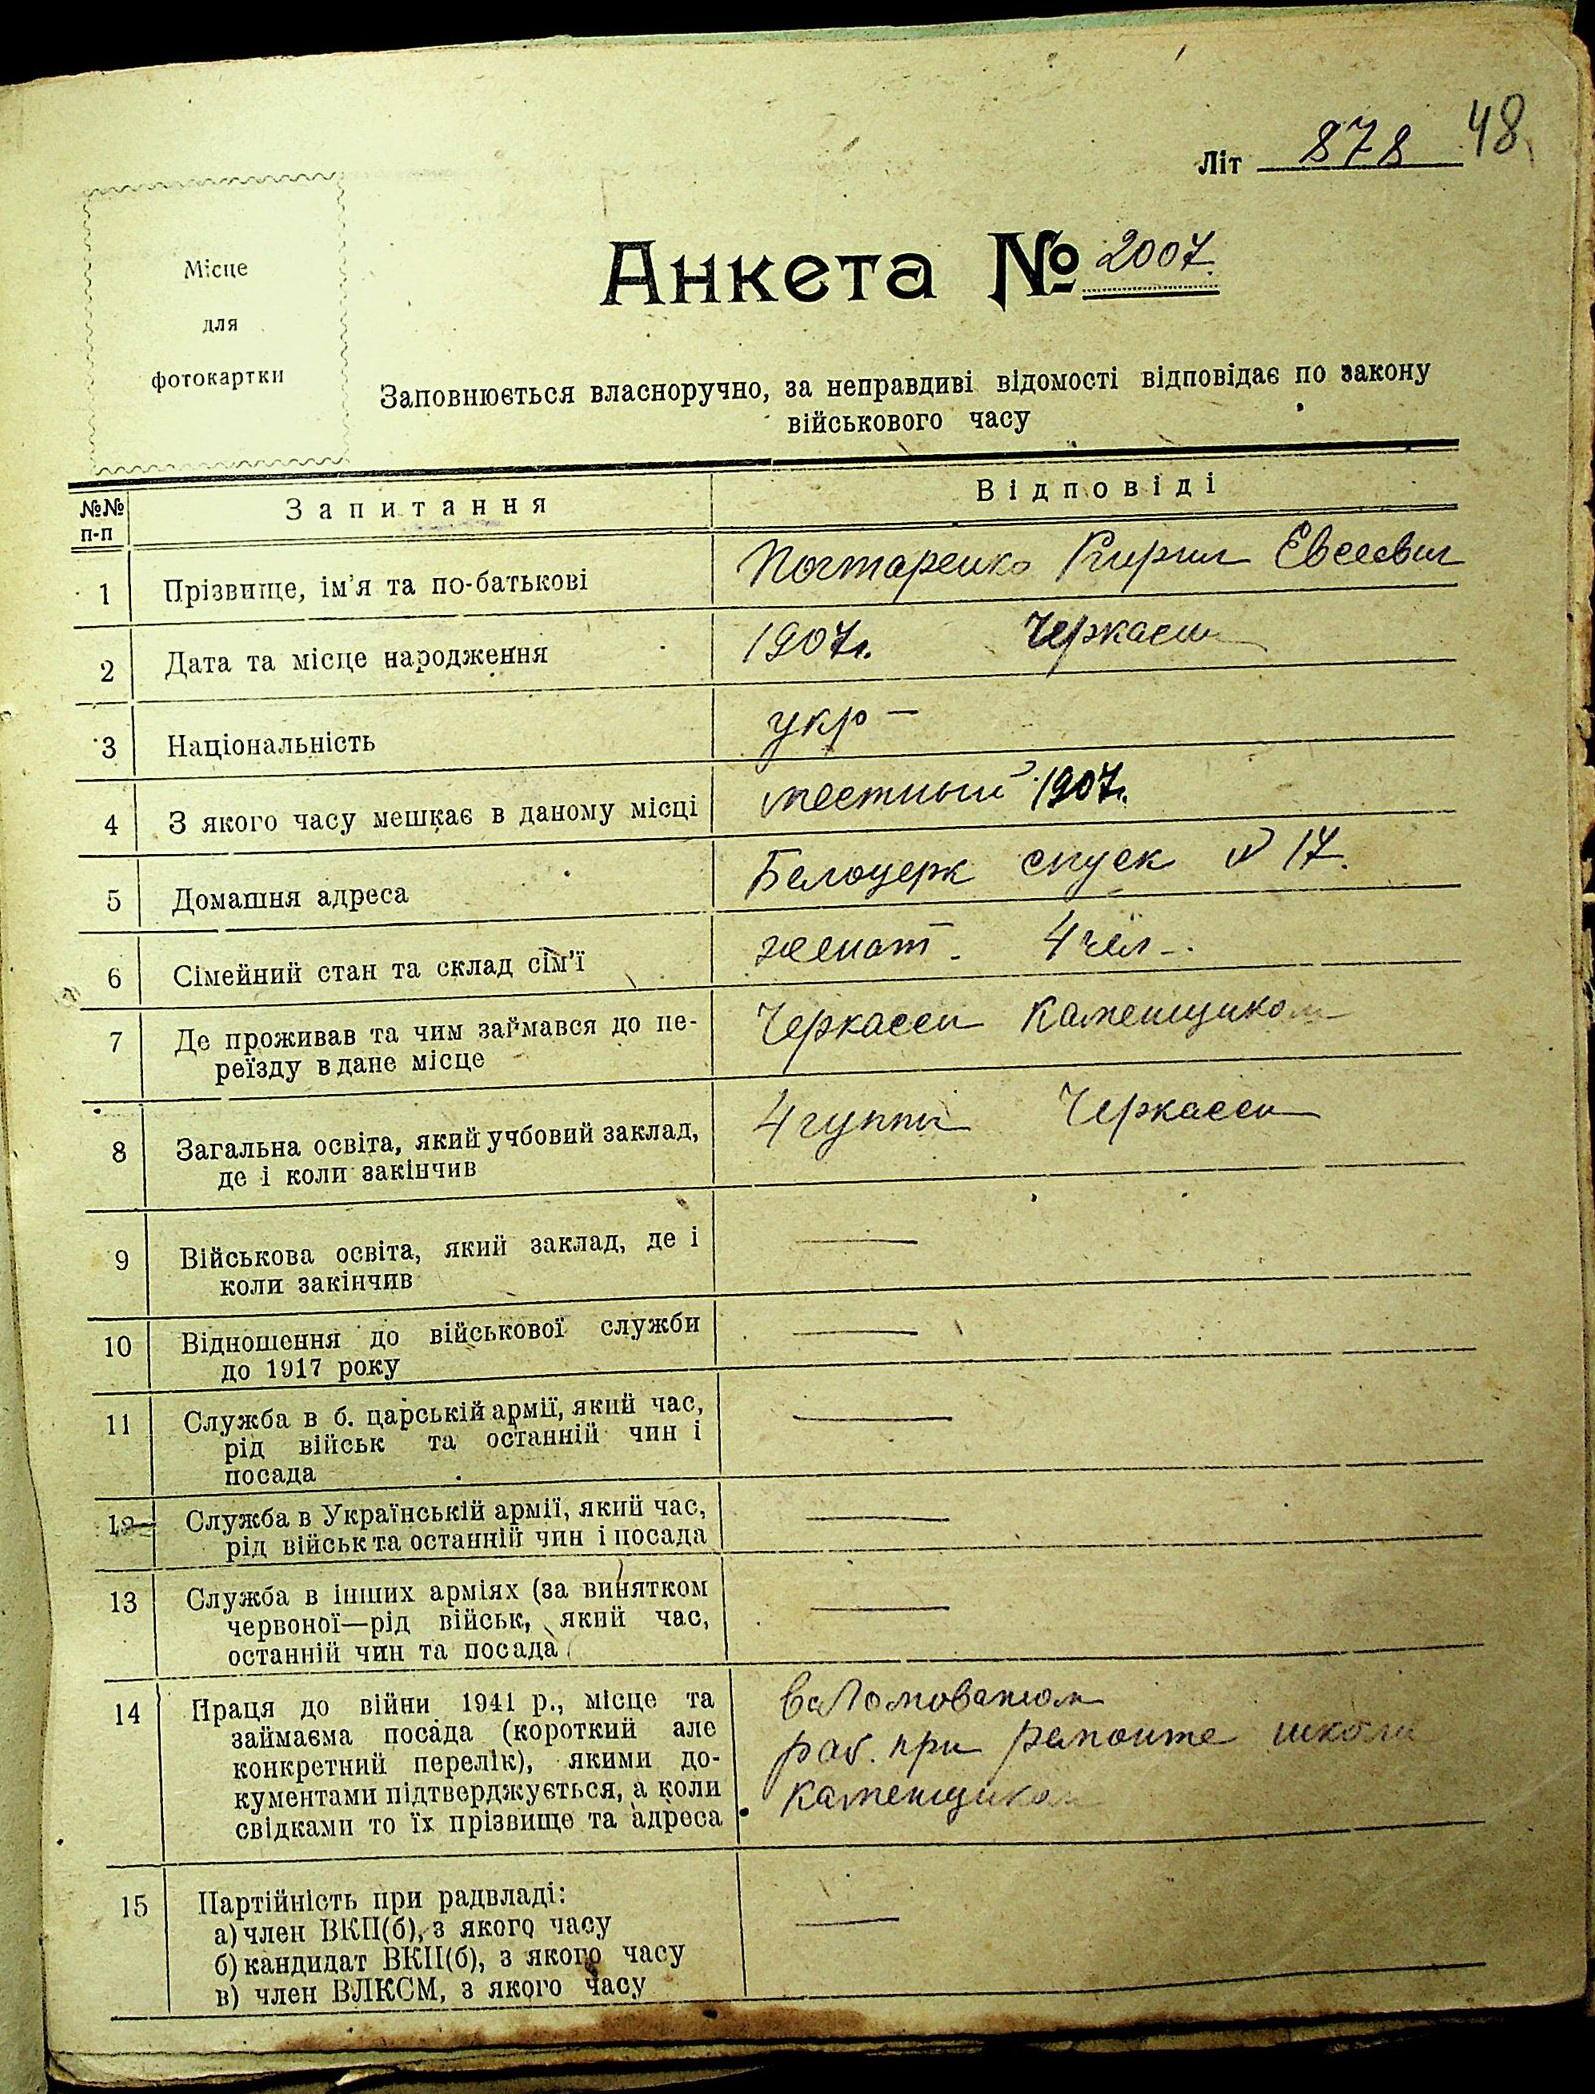 48
Літ 878
Місце
для
фотокартки
Анкета № 2007.
Заповнюється власноручно, за неправдиві відомості відповідає по закону
військового часу
№№
п-п
Запитання
Відповіді
1 Прізвище, ім'я та по-батькові Почтаренко Кирил Евсеевич
2 Дата та місце народження 1907г. Черкассы
3 Національність укр –
4 З якого часу мешкає в даному місці местный 1907г.
5 Домашня адреса Белоцерк спуск № 17.
6 Сімейний стан та склад сім'ї женат. 4 чел.
7 Де проживав та чим займався до пе-
реїзду в дане місце Черкассы Каменщиком
8 Загальна освіта, який учбовий заклад,
де і коли закінчив 4 гуппы Черкассы
9 Військова освіта, який заклад, де і
коли закінчив —
10 Відношення до військової служби
до 1917 року —
11 Служба в б. царській армії, який час,
рід військ та останній чин і
посада —
12 Служба в Українській армії, який час,
рід військ та останній чин і посада —
13 Служба в інших арміях (за винятком
червоної—рід військ, який час,
останній чин та посада —
14 Праця до війни 1941 р., місце та
займаєма посада (короткий але
конкретний перелік), якими до-
кументами підтверджується, а коли
свідками то їх прізвище та адреса
раб. при ремонте школы
каменщиком
15 Партійність при радвладі:
а) член ВКП(б), з якого часу
б) кандидат ВКП(б), з якого часу
в) член ВЛКСМ, з якого часу —